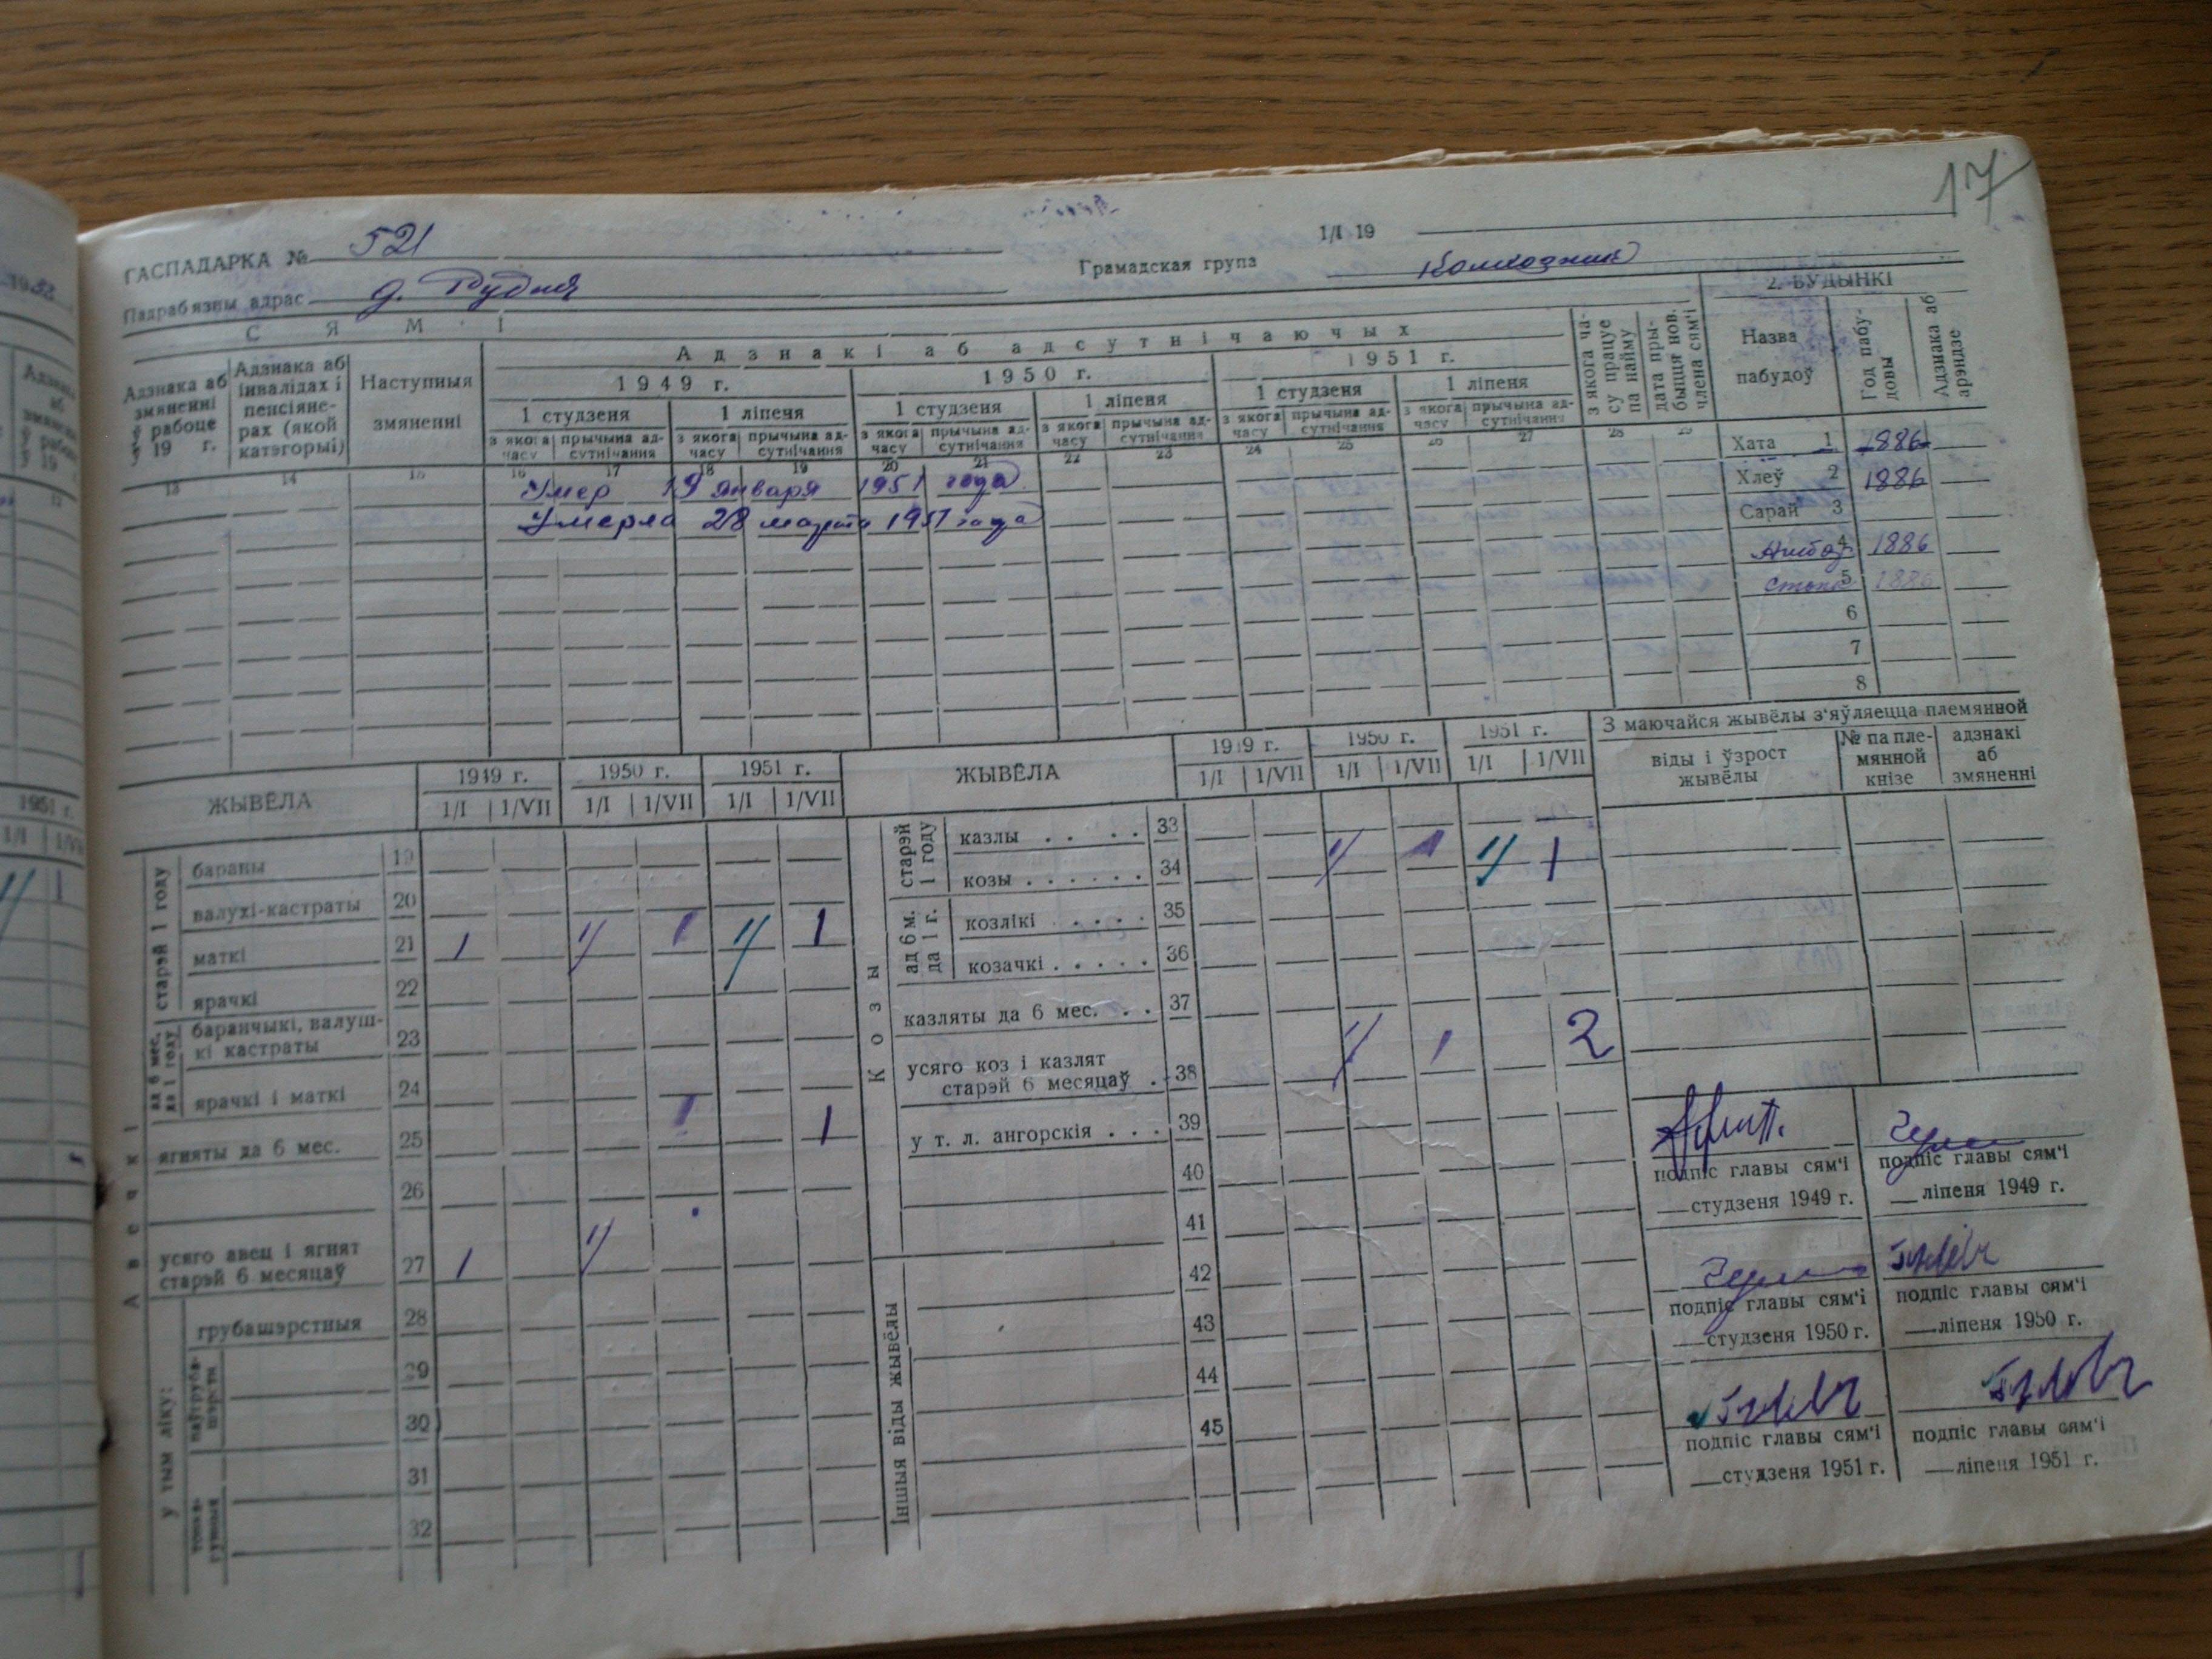 17
ГАСПАДАРКА № 521
1/I 19
Падрабязны адрас д. Рудня
Грамадская група Колхозник
СЯМ'І
2. БУДЫНКІ
Адзнакі аб адсутнічаючых
Адзнака аб змяненні ў рабоце ў 19 г.
Адзнака аб інвалідах і пенсіяне-рах (якой катэгорыі)
Наступныя змяненні
1949 г. 1950 г. 1951 г.
1 студзеня 1 ліпеня 1 студзеня 1 ліпеня 1 студзеня 1 ліпеня
з якога часу прычына ад-сутнічання з якога часу прычына ад-сутнічання з якога часу прычына ад-сутнічання з якога часу прычына ад-сутнічання з якога часу прычына ад-сутнічання з якога часу прычына ад-сутнічання
з якога ча-су працуе па найму
дата пры-быцця нов. члена сям'і
Назва пабудоў
Год пабу-довы
Адзнака аб арэндзе
13 14 15 16 17 18 19 20 21 22 23 24 25 26 27 28 29
Умер 19 января 1951 года
Умерла 28 марта 1951 года
Хата 1 1886
Хлеў 2 1886
Сарай 3
4 1886
5 1886
6
7
8
ЖЫВЁЛА
1949 г. 1950 г. 1951 г.
1/I 1/VII 1/I 1/VII 1/I 1/VII
Авечкі
старэй 1 году
бараны 19
валухі-кастраты 20
маткі 21 1 1 1
ярачкі 22
ад 6 мес. да 1 году
баранчыкі, валуш-кі кастраты 23
ярачкі і маткі 24
ягняты да 6 мес. 25 1 1
26
усяго авец і ягнят старэй 6 месяцаў 27 1
у тым ліку:
грубашэрстныя 28
29
30
31
32
ЖЫВЁЛА
1949 г. 1950 г. 1951 г.
1/I 1/VII 1/I 1/VII 1/I 1/VII
Козы
старэй 1 году
казлы 33
козы 34 1 1
ад 6 м. да 1 г.
козлікі 35
козачкі 36
казляты да 6 мес. 37
усяго коз і казлят старэй 6 месяцаў 38 1 2
у т. л. ангорскія 39
40
41
Іншыя віды жывёлы
42
43
44
45
З маючайся жывёлы з'яўляецца племянной
віды і ўзрост жывёлы
№ па пле-мянной кнізе
адзнакі аб змяненні
подпіс главы сям'і
студзеня 1949 г.
подпіс главы сям'і
ліпеня 1949 г.
подпіс главы сям'і
студзеня 1950 г.
подпіс главы сям'і
ліпеня 1950 г.
подпіс главы сям'і
студзеня 1951 г.
подпіс главы сям'і
ліпеня 1951 г.